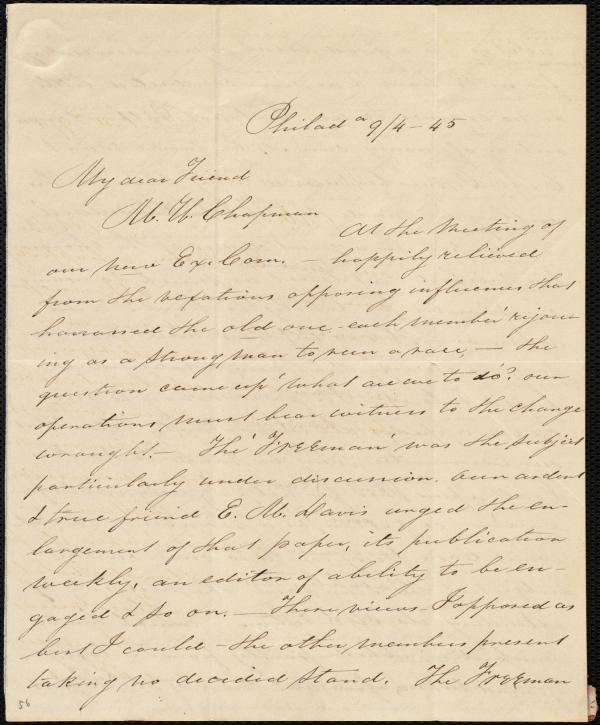 Philada 9/4 - 45
My dear Friend
M. W. Chapman
At the Meeting of
our new Ex. Com. - happily relieved
from the vexatious opposing influences that
harrassed the old one - each member rejoic-
ing as a strong man to run a race, - the
question came up 'what are we to do'? our
operations must bear witness to the change
wrought. - The 'Freeman' was the subject
particularly under discussion. Our ardent
& true friend E. M. Davis urged the en-
largement of that paper, its publication
weekly, an editor of ability to be en-
gaged & so on. - These views I opposed as
best I could - the other members present
taking no decided stand. The Freeman
56